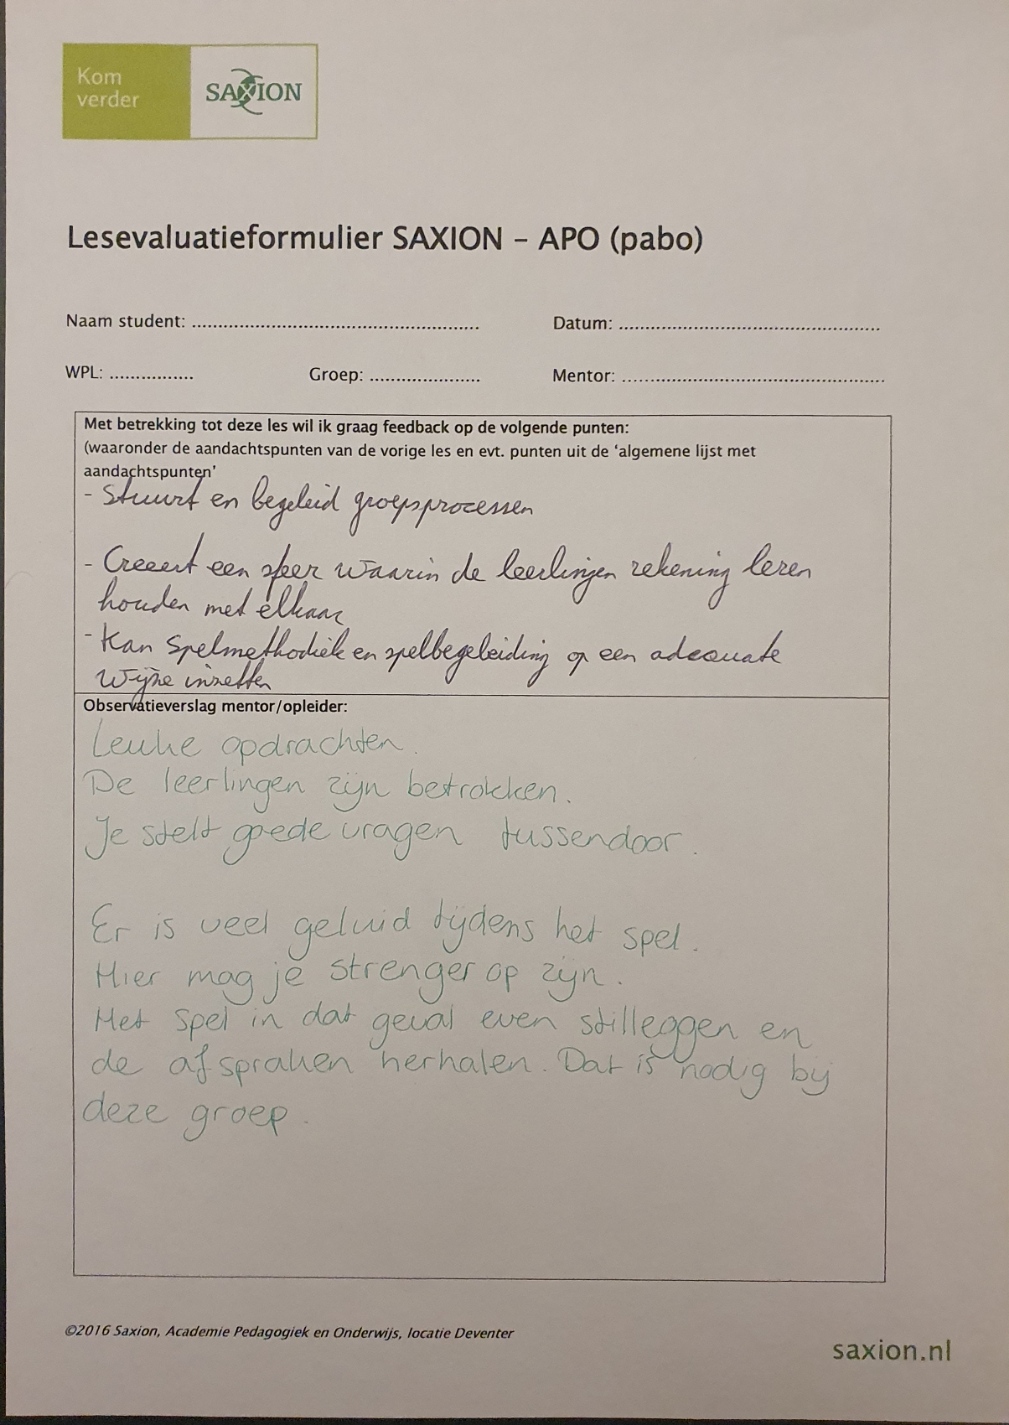 Kom
verder
SAXION
Lesevaluatieformulier SAXION – APO (pabo)
Naam student: ....................................................... Datum: ..................................................
WPL: ................ Groep: ..................... Mentor: ..................................................
Met betrekking tot deze les wil ik graag feedback op de volgende punten:
(waaronder de aandachtspunten van de vorige les en evt. punten uit de ‘algemene lijst met
aandachtspunten’
- Stuurt en begeleid groepsprocessen
- Creeert een sfeer waarin de leerlingen rekening leren
houden met elkaar
- Kan spelmethodiek en spelbegeleiding op een adequate
wijze inzetten
Observatieverslag mentor/opleider:
Leuke opdrachten.
De leerlingen zijn betrokken.
Je stelt goede vragen tussendoor.
Er is veel geluid tijdens het spel.
Hier mag je strenger op zijn.
Het spel in dat geval even stilleggen en
de afspraken herhalen. Dat is nodig bij
deze groep.
©2016 Saxion, Academie Pedagogiek en Onderwijs, locatie Deventer
saxion.nl